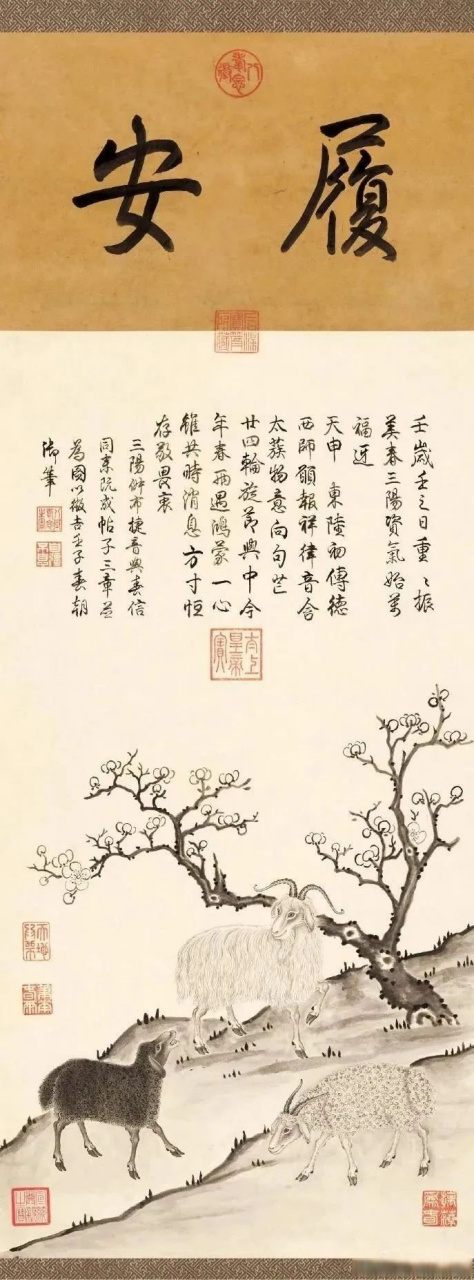 履安
壬歲壬之日重〻振
美春三陽資氣始萬
福近
天申 東陸初傳德
西師願報祥律音含
太蔟物意向句芒
廿四輪旋節與中今
年春兩遇鴻蒙一心
雖共時消息方寸恒
存敬畏衷
三陽布捷音與春信
同來既成帖子三章並
為圖以徵吉壬子春朝
御筆
太上皇帝之寶